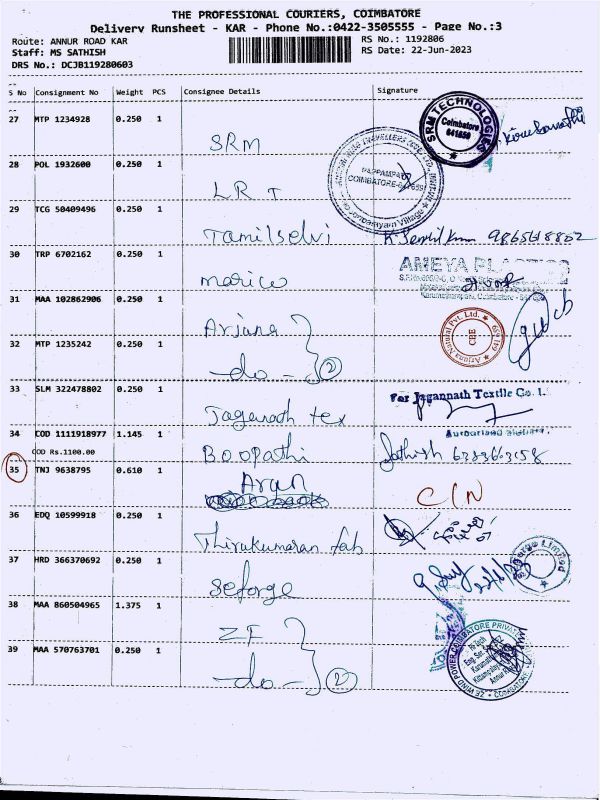 THE PROFESSIONAL COURIERS, COIMBATORE
Delivery Runsheet - KAR - Phone No.:0422-3505555 - Page No.:3
Route: ANNUR ROAD KAR RS No.: 1192806
Staff: MS SATHISH RS Date: 22-Jun-2023
DRS No.: DCJB119280603
S No Consignment No Weight PCS Consignee Details Signature
27 MTP 1234928 0.250 1
SRM
SRM TECHNOLOGIES Coimbatore 641659
28 POL 1932600 0.250 1
LRT
COIMBATORE-641659
29 TCG 50409496 0.250 1
Tamilselvi K. Senthil Kumar 9865618802
30 TRP 6702162 0.250 1
marico
AMEYA
31 MAA 102862906 0.250 1
Arjuna
Arjuna Natural Pvt. Ltd. CBE 641 659
32 MTP 1235242 0.250 1
-do- 2
33 SLM 322478802 0.250 1
Jaganath tex
For Jagannath Textile Co. L
34 COD 1111918977 1.145 1
COD Rs.1100.00
Boopathi Sathish 6383663158
35 TNJ 9638795 0.610 1
Arun
CIN
36 EDQ 10599918 0.250 1
Thirukumaran fab
37 HRD 366370692 0.250 1
Seforge
Limited
38 MAA 860504965 1.375 1
ZF
WIND POWER COIMBATORE PRIVATE
39 MAA 570763701 0.250 1
-do- 2